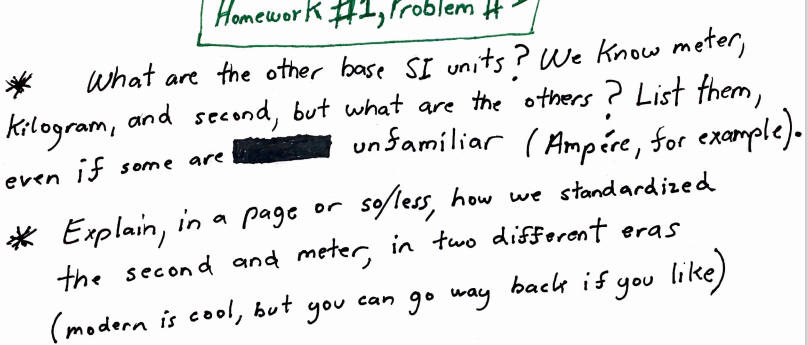 Homework #1, Problem #
* What are the other base SI units? We know meter,
kilogram, and second, but what are the others? List them,
even if some are unfamiliar (Ampére, for example).
* Explain, in a page or so/less, how we standardized
the second and meter, in two different eras
(modern is cool, but you can go way back if you like)